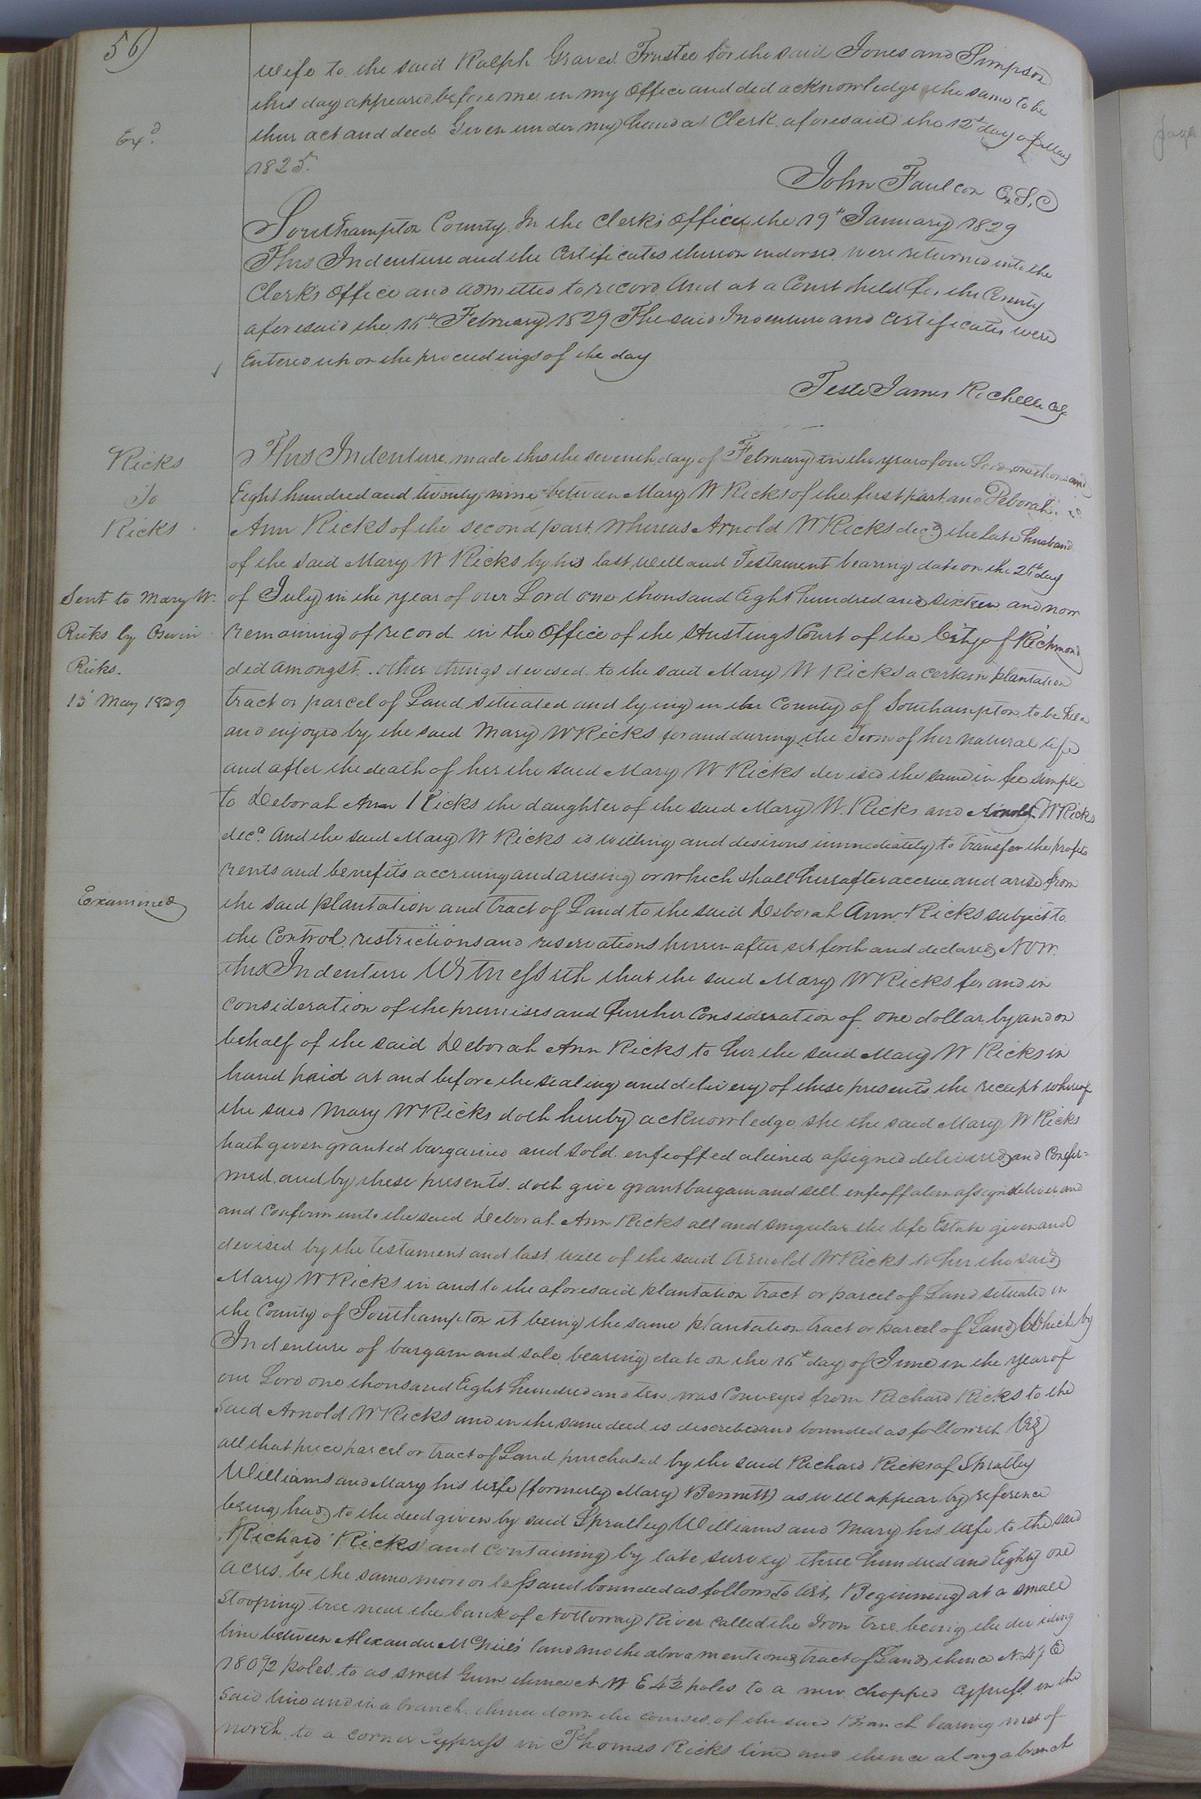 56)
wife to the said Ralph Graves Trustee for the said Jones and Simpson
this day appeared before me in my office and ded acknowledge the same to be
their act and deed Given under my hand as Clerk aforesaid the 12th day of May
Exd.
1825.
John Faulcon C.S.C
Southampton County In the Clerks office the 19th January 1829
This Indenture and the Certificates thereon endorsed were returned into the
Clerk's office and admitted to record And at a Court held for the County
aforesaid the 16th February 1829 The said Indenture and Certificates were
Entered upon the proceedings of the day
Teste James Rochelle Clk
Ricks
To
Ricks
This Indenture made this the seventh day of February in the year of our Lord one thousand
Eight hundred and twenty nine between Mary W Ricks of the first part and Deborah
Ann Ricks of the second part. Whereas Arnold W Ricks decd the late husband
of the said Mary W Ricks by his last will and Testament bearing date on the 26th day
Sent to Mary W.
Ricks by Oswin
Ricks.
15 May 1829
of July in the year of our Lord one thousand Eight hundred and sixteen and now
remaining of record in the office of the Hustings Court of the City of Richmond
ded amongst other things devised to the said Mary W Ricks a certain plantation
tract or parcel of Land situated and lying in the County of Southampton to be held
and enjoyed by the said Mary W Ricks for and during the Term of her natural life
and after the death of her the said Mary W Ricks devised the same in fee simple
to Deborah Ann Ricks the daughter of the said Mary W. Ricks and Arnold W Ricks
decd. And the said Mary W Ricks is willing and desirous immediately to transfer the profits
rents and benefits accruing and arising or which shall hereafter accrue and arise from
Examined
the said plantation and tract of Land to the said Deborah Ann Ricks subject to
the Control, restrictions and reservations herein after set forth and declared, Now
this Indenture Witnesseth that the said Mary W Ricks for and in
consideration of the premises and further Consideration of one dollar by and on
behalf of the said Deborah Ann Ricks to her the said Mary W Ricks in
hand paid at and before the sealing and delivery of these presents the receipt whereof
the said Mary W Ricks doth hereby acknowledge she the said Mary W Ricks
hath given granted bargained and sold enfeoffed aliened assigned delivered and Confir-
med and by these presents doth give grant bargain and sell enfeoff alien assign deliver and
and Confirm unto the said Deborah Ann Ricks all and singular the life Estate given and
devised by the testament and last will of the said Arnold W Ricks to her the said
Mary W Ricks in and to the aforesaid plantation tract or parcel of Land situated in
the County of Southampton it being the same plantation tract or parcel of Land Which by
Indenture of bargain and sale bearing date on the 16th day of June in the year of
our Lord one thousand Eight hundred and ten was Conveyed from Richard Ricks to the
said Arnold W Ricks and in the same deed is described and bounded as followeth Viz
all that piece parcel or tract of Land purchased by the said Richard Ricks of Spratley
Williams and Mary his wife (formerly Mary Bennett) as will appear by reference
being had to the deed given by said Spratley Williams and Mary his wife to the said
Richard Ricks and Containing by late survey three hundred and Eighty one
acres be the same more or less and bounded as follows to wit, Beginning at a small
stooping tree near the bank of Nottoway River called the Iron tree being the deviding
line between Alexander McNeil's land and the above mentioned tract of Land thence N 47 E
180 1/2 poles to as sweet Gum thence W E 42 poles to a new chopped cypress in the
said line and in a branch thence down the courses of the said Branch bearing west of
north to a corner Cypress in Thomas Ricks line and thence along a branch